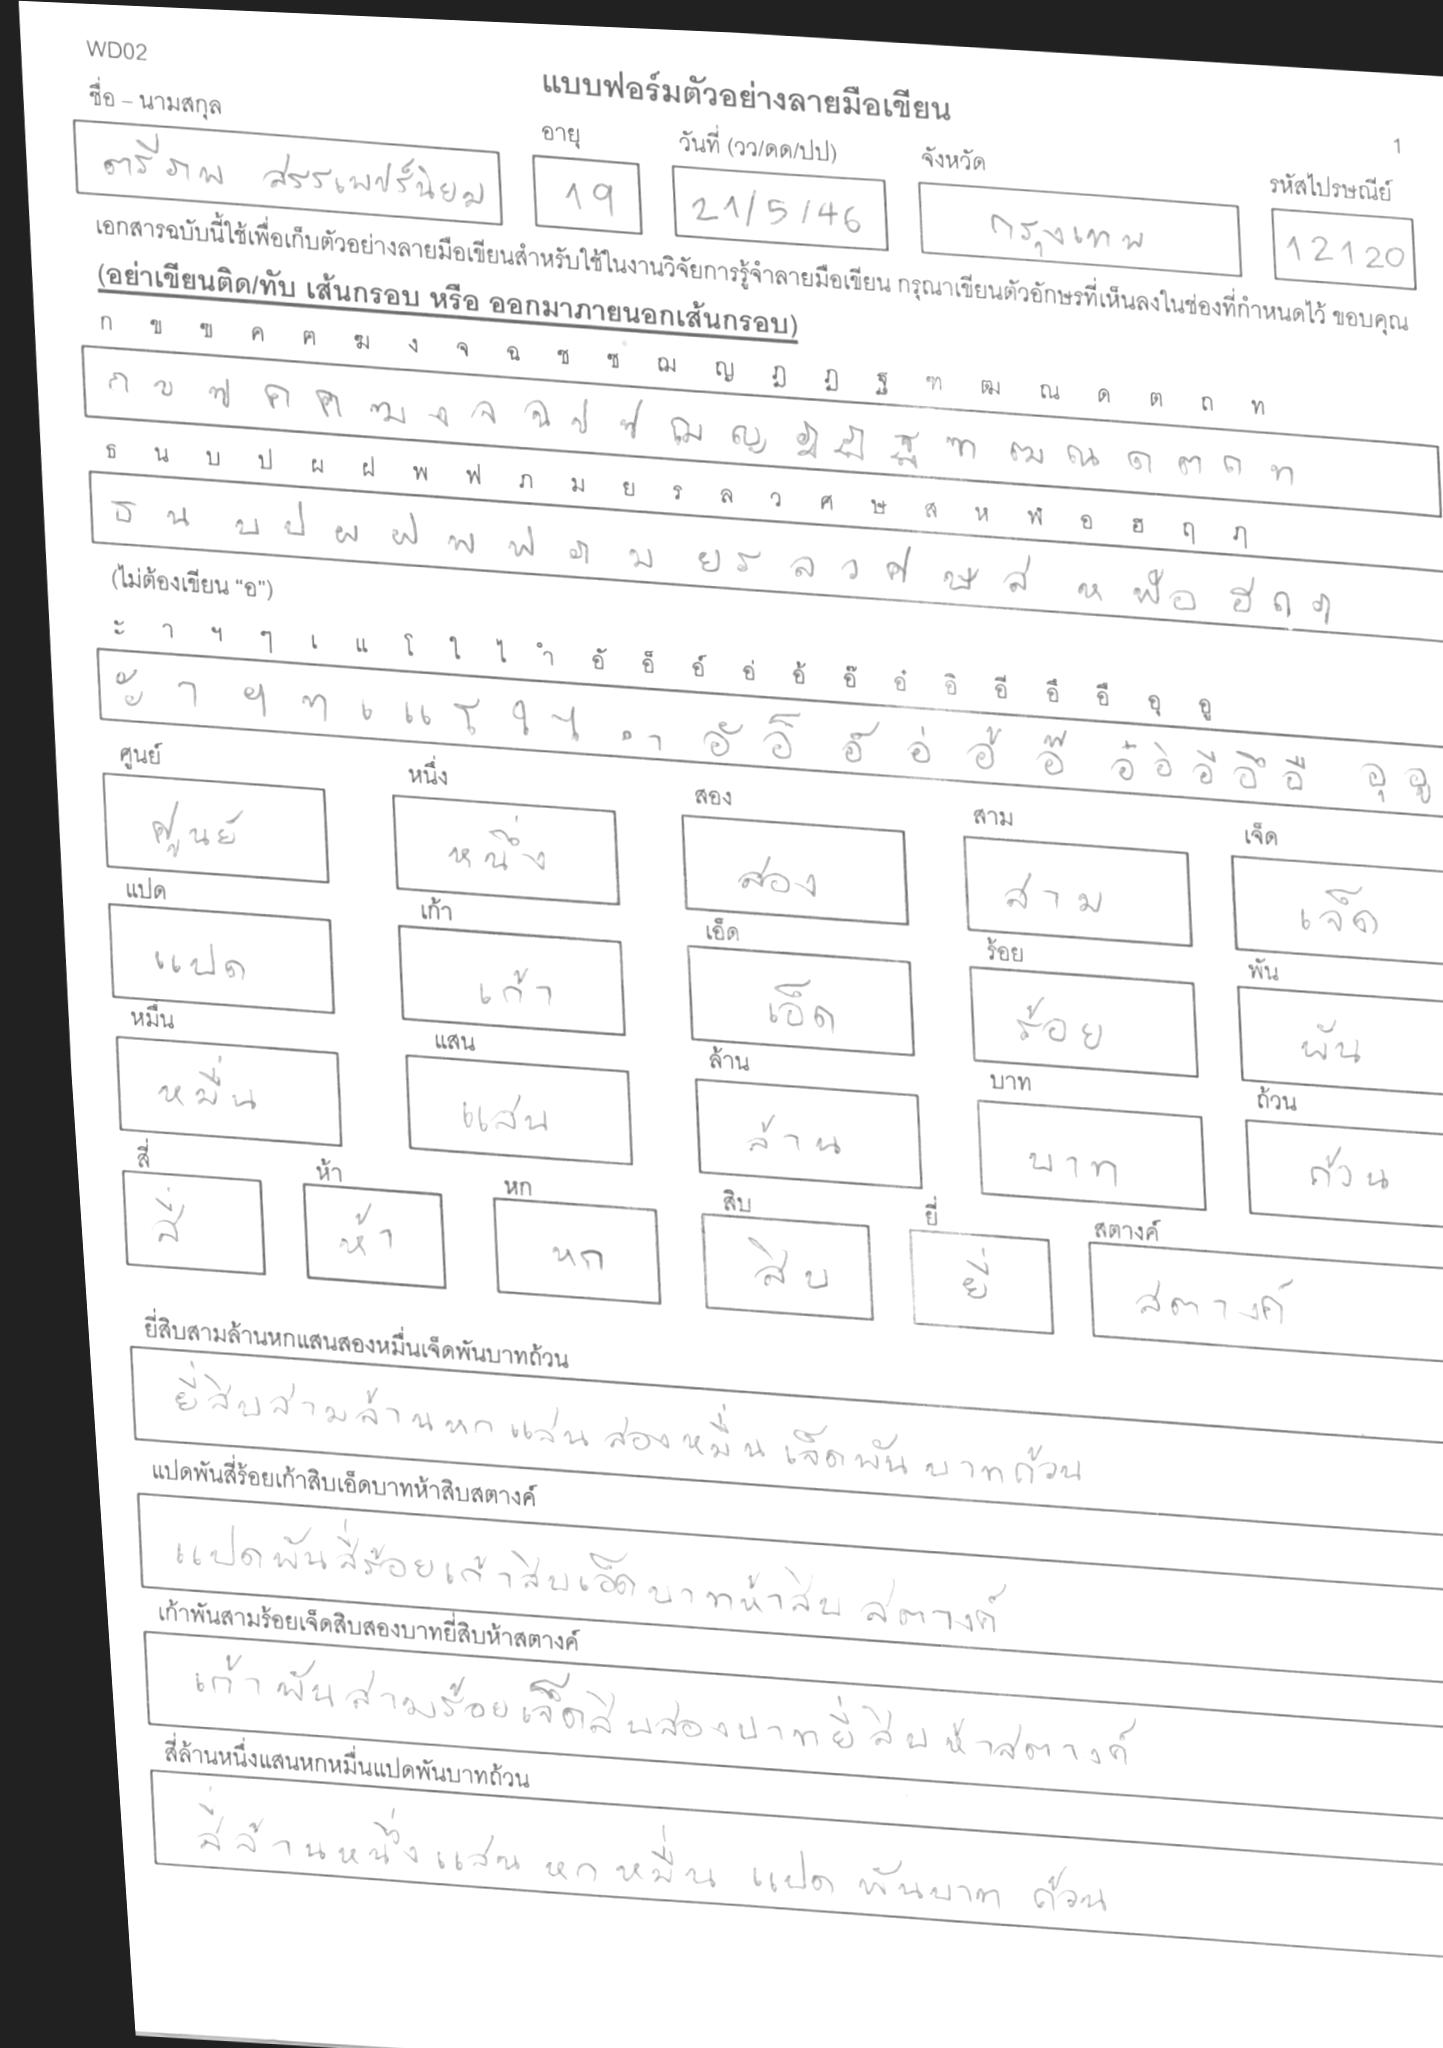 WD02
แบบฟอร์มตัวอย่างลายมือเขียน
1
ชื่อ – นามสกุล อายุ วันที่ (วว/ดด/ปป) จังหวัด รหัสไปรษณีย์
ตรีภพ สรรเพชร์นิยม 19 21/5/46 กรุงเทพ 12120
เอกสารฉบับนี้ใช้เพื่อเก็บตัวอย่างลายมือเขียนสำหรับใช้ในงานวิจัยการรู้จำลายมือเขียน กรุณาเขียนตัวอักษรที่เห็นลงในช่องที่กำหนดไว้ ขอบคุณ
(อย่าเขียนติด/ทับ เส้นกรอบ หรือ ออกมาภายนอกเส้นกรอบ)
ก ข ฃ ค ฅ ฆ ง จ ฉ ช ซ ฌ ญ ฎ ฏ ฐ ฑ ฒ ณ ด ต ถ ท
ก ข ฃ ค ฅ ฆ ง จ ฉ ช ซ ฌ ญ ฎ ฏ ฐ ฑ ฒ ณ ด ต ถ ท
ธ น บ ป ผ ฝ พ ฟ ภ ม ย ร ล ว ศ ษ ส ห ฬ อ ฮ ฤ ฦ
ธ น บ ป ผ ฝ พ ฟ ภ ม ย ร ล ว ศ ษ ส ห ฬ อ ฮ ฤ ฦ
(ไม่ต้องเขียน “อ”)
ะ า ฯ ๆ เ แ โ ใ ไ ำ อั อ็ อ์ อ่ อ้ อ๊ อํ อิ อี อึ อื อุ อู
ะ า ฯ ๆ เ แ โ ใ ไ ำ อั อ็ อ์ อ่ อ้ อ๊ อํ อิ อี อึ อื อุ อู
ศูนย์ หนึ่ง สอง สาม เจ็ด
ศูนย์ หนึ่ง สอง สาม เจ็ด
แปด เก้า เอ็ด ร้อย พัน
แปด เก้า เอ็ด ร้อย พัน
หมื่น แสน ล้าน บาท ถ้วน
หมื่น แสน ล้าน บาท ถ้วน
สี่ ห้า หก สิบ ยี่ สตางค์
สี่ ห้า หก สิบ ยี่ สตางค์
ยี่สิบสามล้านหกแสนสองหมื่นเจ็ดพันบาทถ้วน
ยี่สิบสามล้านหกแสนสองหมื่นเจ็ดพันบาทถ้วน
แปดพันสี่ร้อยเก้าสิบเอ็ดบาทห้าสิบสตางค์
แปดพันสี่ร้อยเก้าสิบเอ็ดบาทห้าสิบสตางค์
เก้าพันสามร้อยเจ็ดสิบสองบาทยี่สิบห้าสตางค์
เก้าพันสามร้อยเจ็ดสิบสองบาทยี่สิบห้าสตางค์
สี่ล้านหนึ่งแสนหกหมื่นแปดพันบาทถ้วน
สี่ล้านหนึ่งแสนหกหมื่นแปดพันบาทถ้วน